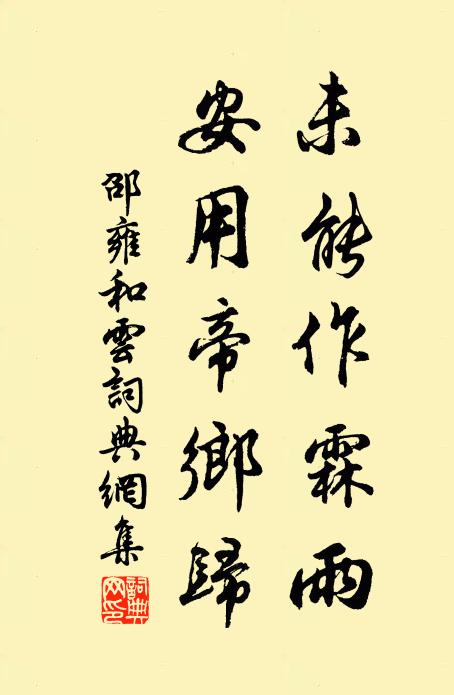 未能作霖雨
安用帝鄉歸
邵雍和雲詞典網集
詞典網印